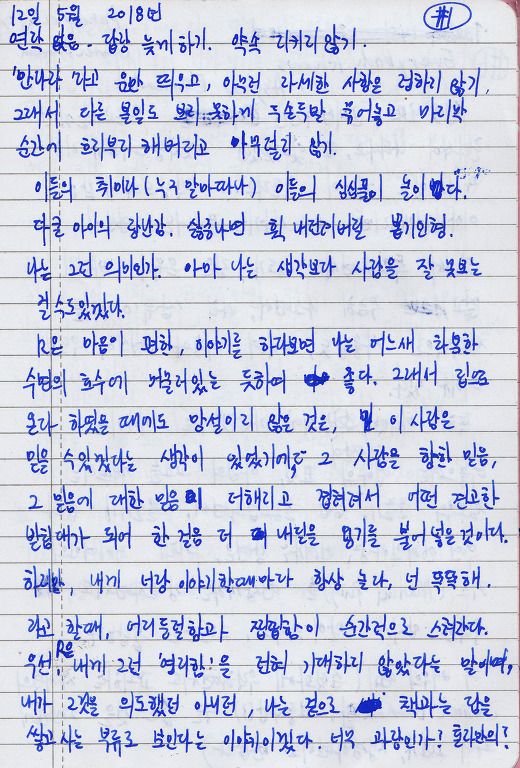 #1
12일 5월 2018년
연락 없음. 답장 늦게하기. 약속 지키지 않기.
'만나자'라고 운만 띄우고, 아무런 자세한 사항은 정하지 않기,
그래서 다른 볼일도 보지 못하게 두손두발 묶어놓고 마지막
순간에 흐리부리 해버리고 아무렇지 않기.
이들의 취미다 (누구 말마따나) 이들의 심심풀이 놀이다.
다큰 아이의 장난감. 싫증나면 휙 내던져버릴 봉제인형.
나는 그런 의미인가. 아마 나는 생각보다 사람을 잘 못보는
걸 수도있겠다.
R은 마음이 편한, 이야기를 하다보면 나는 어느새 차분한
수면의 호수에 머물러있는 듯하여 좋다. 그래서 집으로
온다 하였을 때에도 망설이지 않은 것은, 이 사람은
믿을 수있겠다는 생각이 있었기에, 그 사람을 향한 믿음,
그 믿음에 대한 믿음 더해지고 겹쳐져서 어떤 견고한
발침대가 되어 한 걸음 더 내딛을 용기를 불어넣은것이다.
하지만, 내게 너랑 이야기할때마다 항상 놀라, 넌 똑똑해.
라고 할때, 어리둥절함과 찝찝함이 순간적으로 스쳐간다.
우선 R은 내게 그런 '영리함'을 전혀 기대하지 않았다는 말이며,
내가 그것을 의도했던 아니던, 나는 겉으로 책과는 담을
쌓고 사는 부류로 보인다는 이야기이겠다. 너무 과장인가?